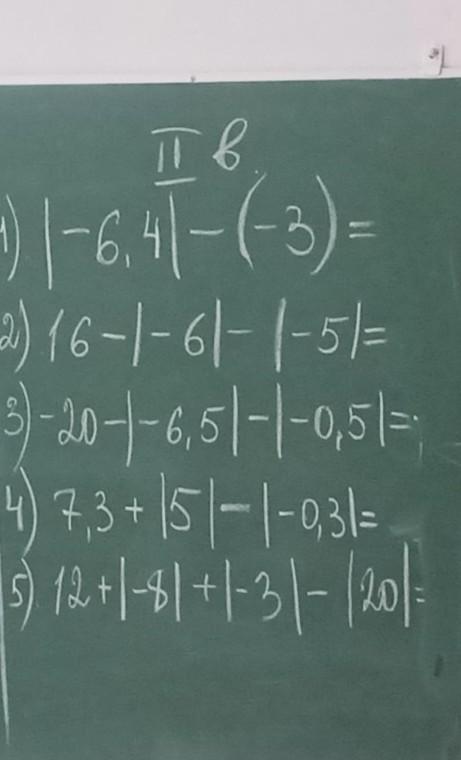 II в.
1) |-6,4| - (-3) =
2) 16 - |-6| - |-5| =
3) -20 - |-6,5| - |-0,5| =
4) 7,3 + |5| - |-0,3| =
5) 12 + |-8| + |-3| - |20| =